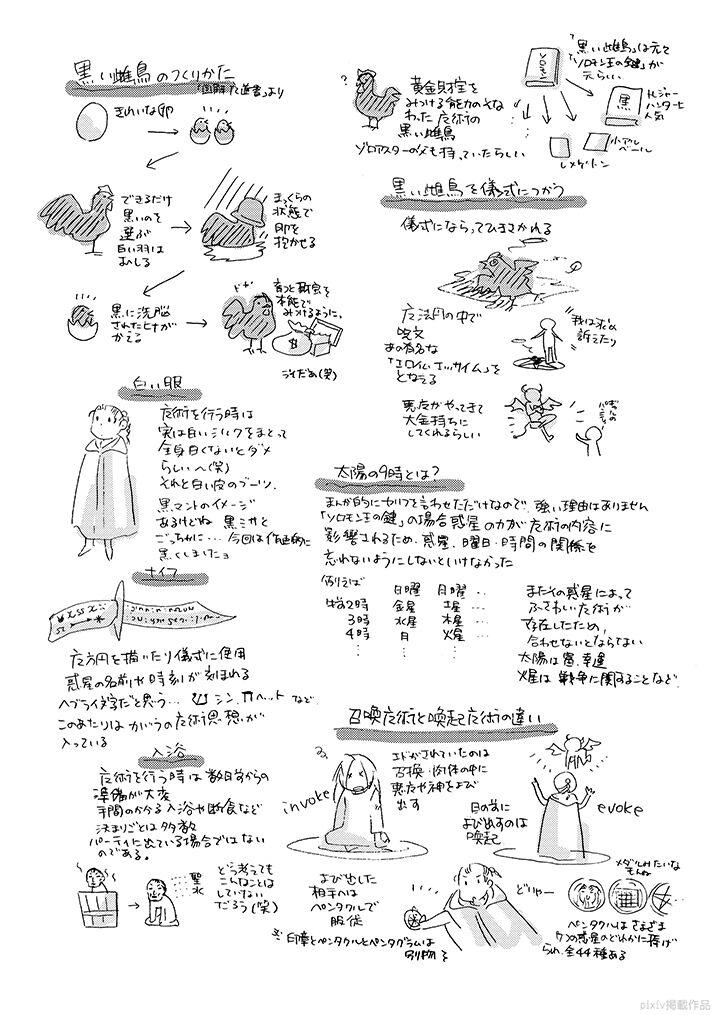 黒い雌鳥のつくりかた
「図解 魔道書」より
きれいな卵
できるだけ
黒いのを
選ぶ
白い羽は
むしる
まっくらの
状態で
卵を
抱かせる
黒に洗脳
されたヒナが
かえる
育つと財宝を
本能で
みつけるように。
ドヤ
ヅイだぁ(笑)
黄金財宝を
みつける能力のそな
わった魔術の
黒い雌鳥
ゾロアスターの父も持っていたらしい
「黒い雌鳥」は元々
「ソロモン王の鍵」が
元らしい
ソロモン
黒
トレジャー
ハンターに
人気
小アルベール
レメゲトン
黒い雌鳥を儀式につかう
儀式にならってひきさかれる
魔法円の中で
呪文
あの有名な
「エロイム エッサイム」を
となえる
我は求め
訴えたり
悪魔がやってきて
大金持ちに
してくれるらしい
白い服
魔術を行う時は
実は白いシルクをまとって
全身白くないとダメ
らしいへ(笑)
それと白い皮のブーツ。
黒マントのイメージ
あるけどね 黒ミサと
ごっちゃに…今回は作画的に
黒くしましたョ
太陽の9時とは?
まんが的にセリフを言わせただけなので、強い理由はありません
「ソロモン王の鍵」の場合惑星の力が魔術の内容に
影響されるため、惑星、曜日・時間の関係を
忘れないようにしないといけなかった
例えば
日曜 月曜 …
午前2時 金星 土星 …
3時 水星 木星 …
4時 月 火星 …
またその惑星によって
ふさわしい魔術が
存在したため、
合わせないとならない
太陽は富、幸運
火星は戦争に関することなど
ナイフ
魔方円を描いたり儀式に使用
惑星の名前や時刻が刻まれる
ヘブライ文字だと思う… シン、ヘットなど
このあたりはカバラの魔術思想が
入っている
入浴
魔術を行う時は数日前からの
準備が大変
手間のかかる入浴や断食など
決まりごとは多数
パーティに出ている場合ではない
のである。
聖水
どう考えても
こんなことは
していない
だろう(笑)
召喚魔術と喚起魔術の違い
invoke
エドがされていたのは
召喚・肉体の中に
悪魔や神をよび
出す
目の前に
よび出すのは
喚起
evoke
よび出した
相手へは
ペンタクルで
服従
どりゃー
メダルみたいな
もんね
※印章とペンタクルとペンタグラムは
別物
ペンタクルはさまざま
7つの惑星のどれかに捧げ
られ、全44種ある
pixiv掲載作品